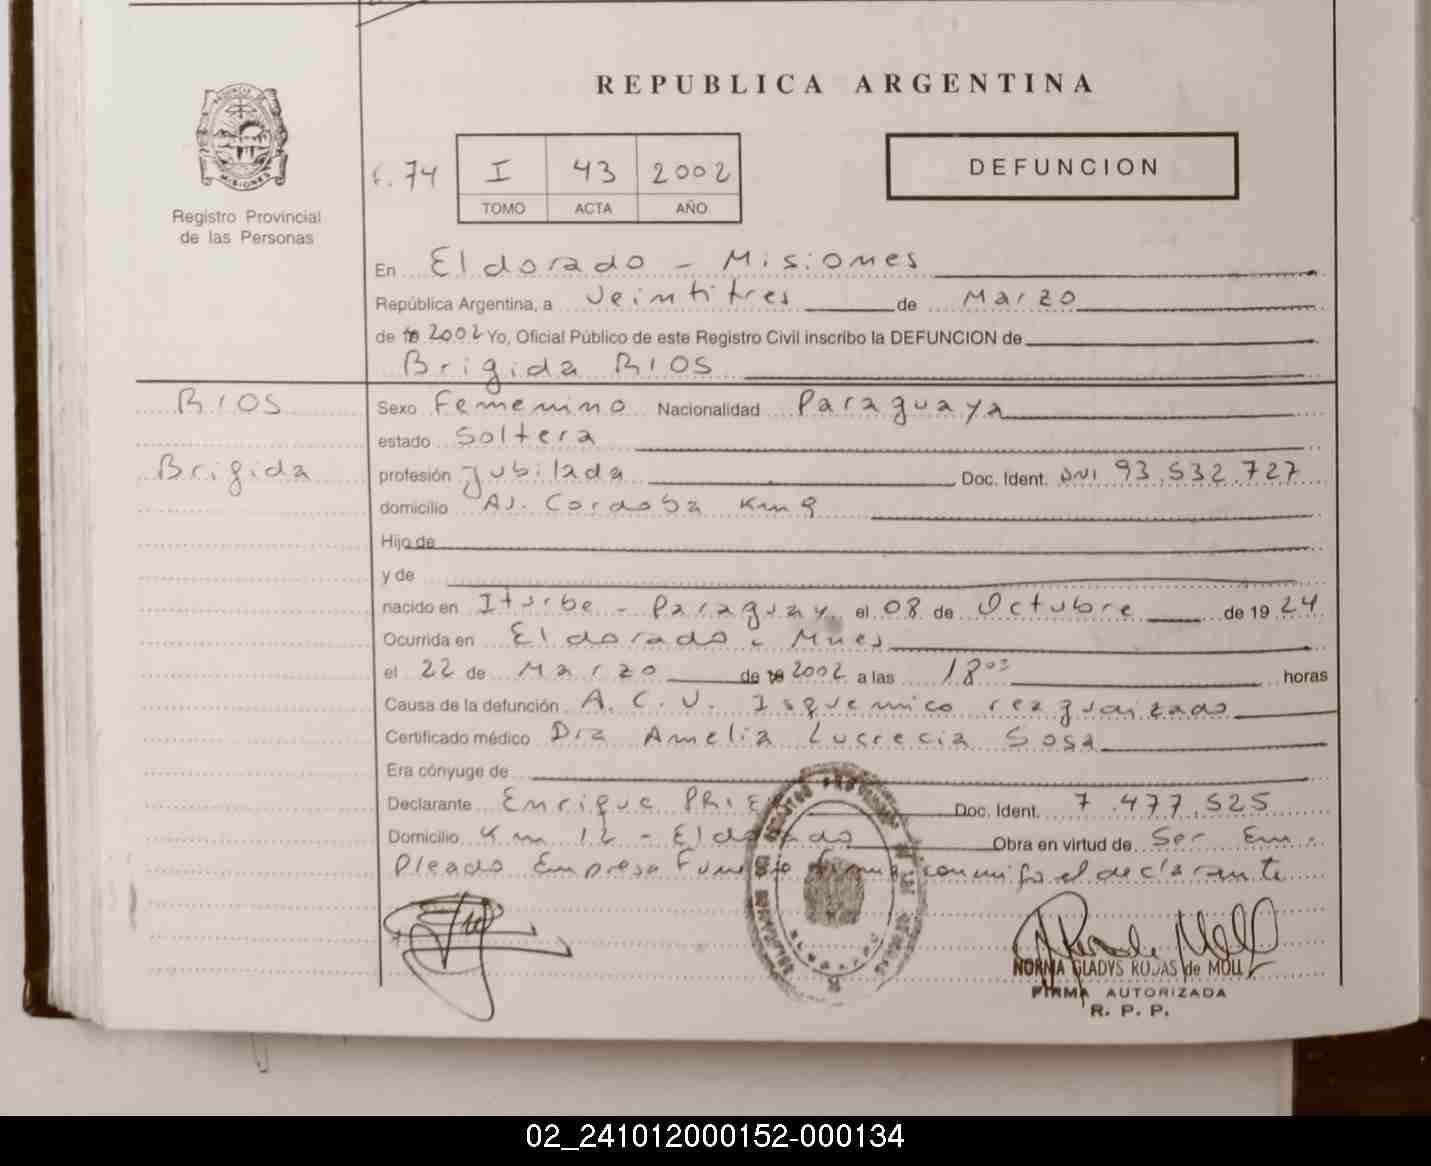 REPUBLICA ARGENTINA
MISIONES
Registro Provincial
de las Personas
f. 74 I 43 2002
TOMO ACTA AÑO
DEFUNCION
En Eldorado - Misiones
República Argentina, a Veintitres de Marzo
de 2002 Yo, Oficial Público de este Registro Civil inscribo la DEFUNCION de
Brigida RIOS
RIOS
Brigida
Sexo Femenino Nacionalidad Paraguaya
estado Soltera
profesión Jubilada Doc. Ident. DNI 93.532.727
domicilio Av. Cordoba Km 9
Hijo de
y de
nacido en Iturbe - Paraguay el 08 de Octubre de 19 24
Ocurrida en Eldorado - Mnes
el 22 de Marzo de 2002 a las 18 horas
Causa de la defunción A. C. V. Isquemico
Certificado médico Dra Amelia Lucrecia Sosa
Era cónyuge de
Declarante Enrique Doc. Ident. 7.477.525
Domicilio Km 12 - Eldorado Obra en virtud de Ser Em-
pleado Empresa Funebre firma conmigo el declarante
NORMA GLADYS ROJAS de MOLL
FIRMA AUTORIZADA
R. P. P.
02_241012000152-000134